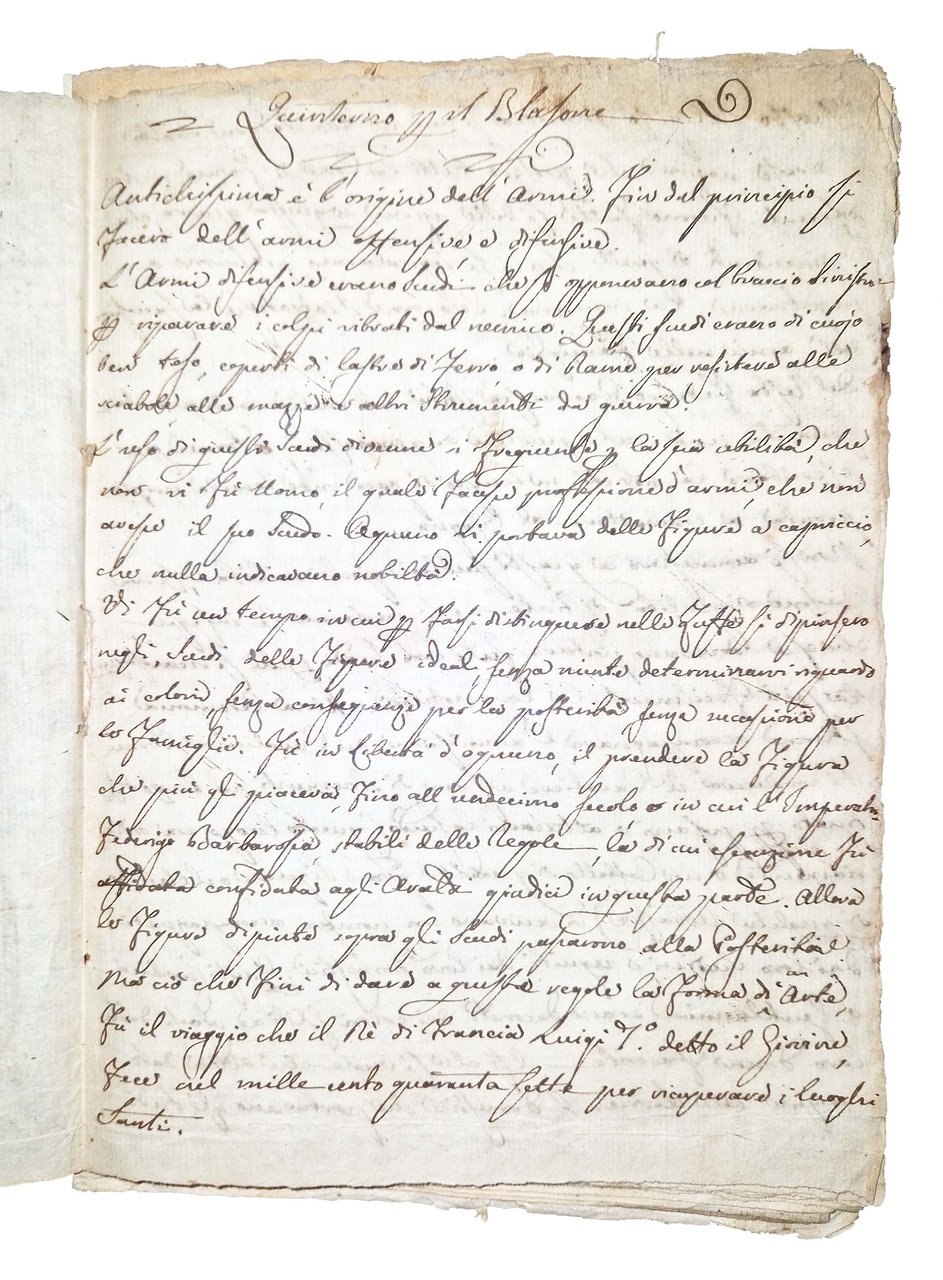 Quinterno p il Blasone
Antichissima è l'origine dell'Armi. Fin dal principio si
fecero dell'armi offensive e difensive.
L'Armi difensive erano Scudi che si opponevano col braccio sinistro
p riparare i colpi vibrati dal nemico. Questi scudi erano di cuojo
ben teso, coperti di lastre di ferro, o di Rame per resistere alle
sciabole alle mazze e altri Strumenti da guerra.
L'uso di questi Scudi divenne si frequente p la sua abilità, che
non vi fù Uomo, il quale facesse professione d'armi, che non
avesse il suo Scudo. Ognuno vi portava delle Figure a capriccio,
che nulla indicavano nobiltà.
Vi fù un tempo in cui p farsi distinguere nelle Zuffe si dipinsero
negli Scudi delle Figure ideali, senza niente determinarvi riguardo
ai colori, senza conseguenze per la posterità, senza successione per
le Famiglie. Fù in libertà d'ognuno, il prendere la Figura
che più gli piaceva, fino all'undecimo secolo in cui l'Imperat:
Federigo Barbarossa, stabilì delle Regole, la di cui esecuzione fù
affidata confidata agli Araldi giudici in questa parte. Allora
le Figure dipinte sopra gli Scudi passarono alla Posterità
Ma ciò che finì di dare a queste regole la Forma di in Arte,
Fù il viaggio che il Rè di Francia Luigi 7.° detto il Giovine,
Fece nel mille cento quaranta sette per ricuperare i luoghi
Santi.